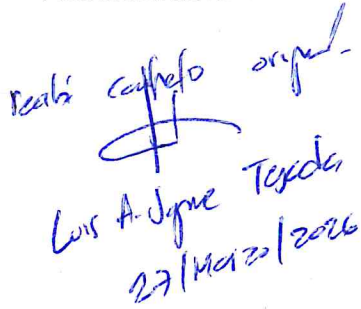 recibí contrato original.
Luis A. Jayme Tejeda
27/Marzo/2026